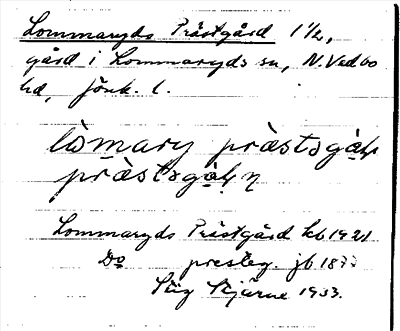 Lommaryds Prästgård 1 1/2,
gård i Lommaryds sn, N. Vedbo
hd, Jönk. l.
prästsgå
Lommaryds Prästgård kb 1921
Do presteg. jb 1877
Stig Bjärne 1933.